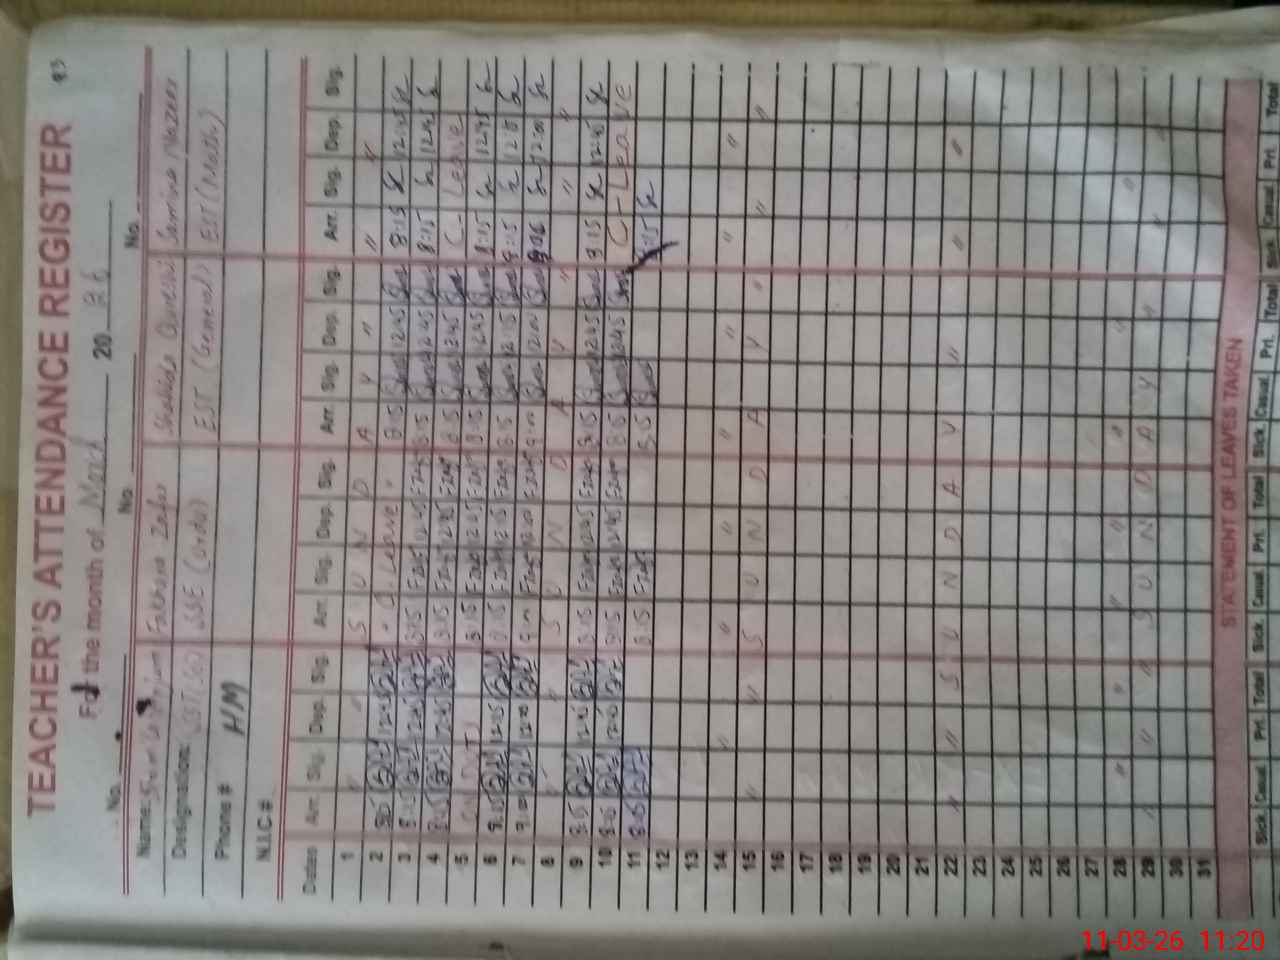 83
TEACHER'S ATTENDANCE REGISTER
For the month of March 20 26
No. No. No.
Name: Fakhara Zafar Shahida Qureshi Samina Nazeer
Designation: SSE (Urdu) EST (General) EST (Math)
Phone # HM
N.I.C #
Dates Arr. Sig. Dep. Sig. Arr. Sig. Dep. Sig. Arr. Sig. Dep. Sig. Arr. Sig. Dep. Sig.
1 " " S U N D A Y " " "
2 8:15 12:45 " C. Leave " 8:15 12:45 8:15 12:45
3 8:15 12:45 8:15 12:45 8:15 12:45 8:15 12:45
4 8:15 12:45 8:15 12:45 8:15 12:45 C - Leave
5 ON DUTY 8:15 12:45 8:15 12:45 8:15 12:45
6 8:15 12:15 8:15 12:15 8:15 12:15 8:15 12:15
7 9:00 12:00 9:00 12:00 9:00 12:00 9:06 12:00
8 " " S U N D A Y " " "
9 8:15 12:45 8:15 12:45 8:15 12:45 8:15 12:45
10 8:15 12:45 8:15 12:45 8:15 12:45 C - Leave
11 8:15 8:15 8:15 8:15
12
13
14 " " " " " " "
15 " " S U N D A Y " " "
16
17
18
19
20
21
22 " " S U N D A Y " " "
23
24
25
26
27
28 " " " " " " "
29 " " " S U N D A Y " " "
30
31
STATEMENT OF LEAVES TAKEN
Sick Casual Prl. Total Sick Casual Prl. Total Sick Casual Prl. Total Sick Casual Prl. Total
11-03-26 11:20